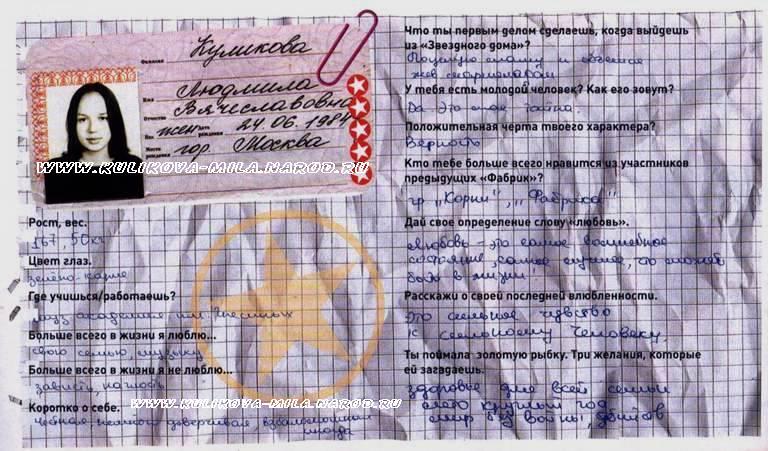 Фамилия Куликова
Имя Людмила
Отчество Вячеславовна
Пол жен дата рождения 24.06.1984
Место рождения гор. Москва
WWW.KULIKOVA-MILA.NAROD.RU
Рост, вес.
167, 50 кг
Цвет глаз.
зелёно-карие
Где учишься/работаешь?
академия им Гнесиных
Больше всего в жизни я люблю...
свою семью, музыку
Больше всего в жизни я не люблю...
зависть, наглость
Коротко о себе.
WWW.KULIKOVA-MILA.NAROD.RU
честная, немного доверчивая
иногда
Что ты первым делом сделаешь, когда выйдешь
из «Звездного дома»?
Поцелую маму и
У тебя есть молодой человек? Как его зовут?
Да. Это моя тайна.
Положительная черта твоего характера?
Верность
Кто тебе больше всего нравится из участников
предыдущих «Фабрик»?
гр „Корни", „Фабрика"
Дай свое определение слову «любовь».
Любовь - это самое волшебное
состояние, самое лучшее, что может
быть в жизни!
Расскажи о своей последней влюбленности.
Это сильное чувство
к сильному человеку.
Ты поймала золотую рыбку. Три желания, которые
ей загадаешь.
здоровье для всей семьи
лето круглый год
мир без войны,